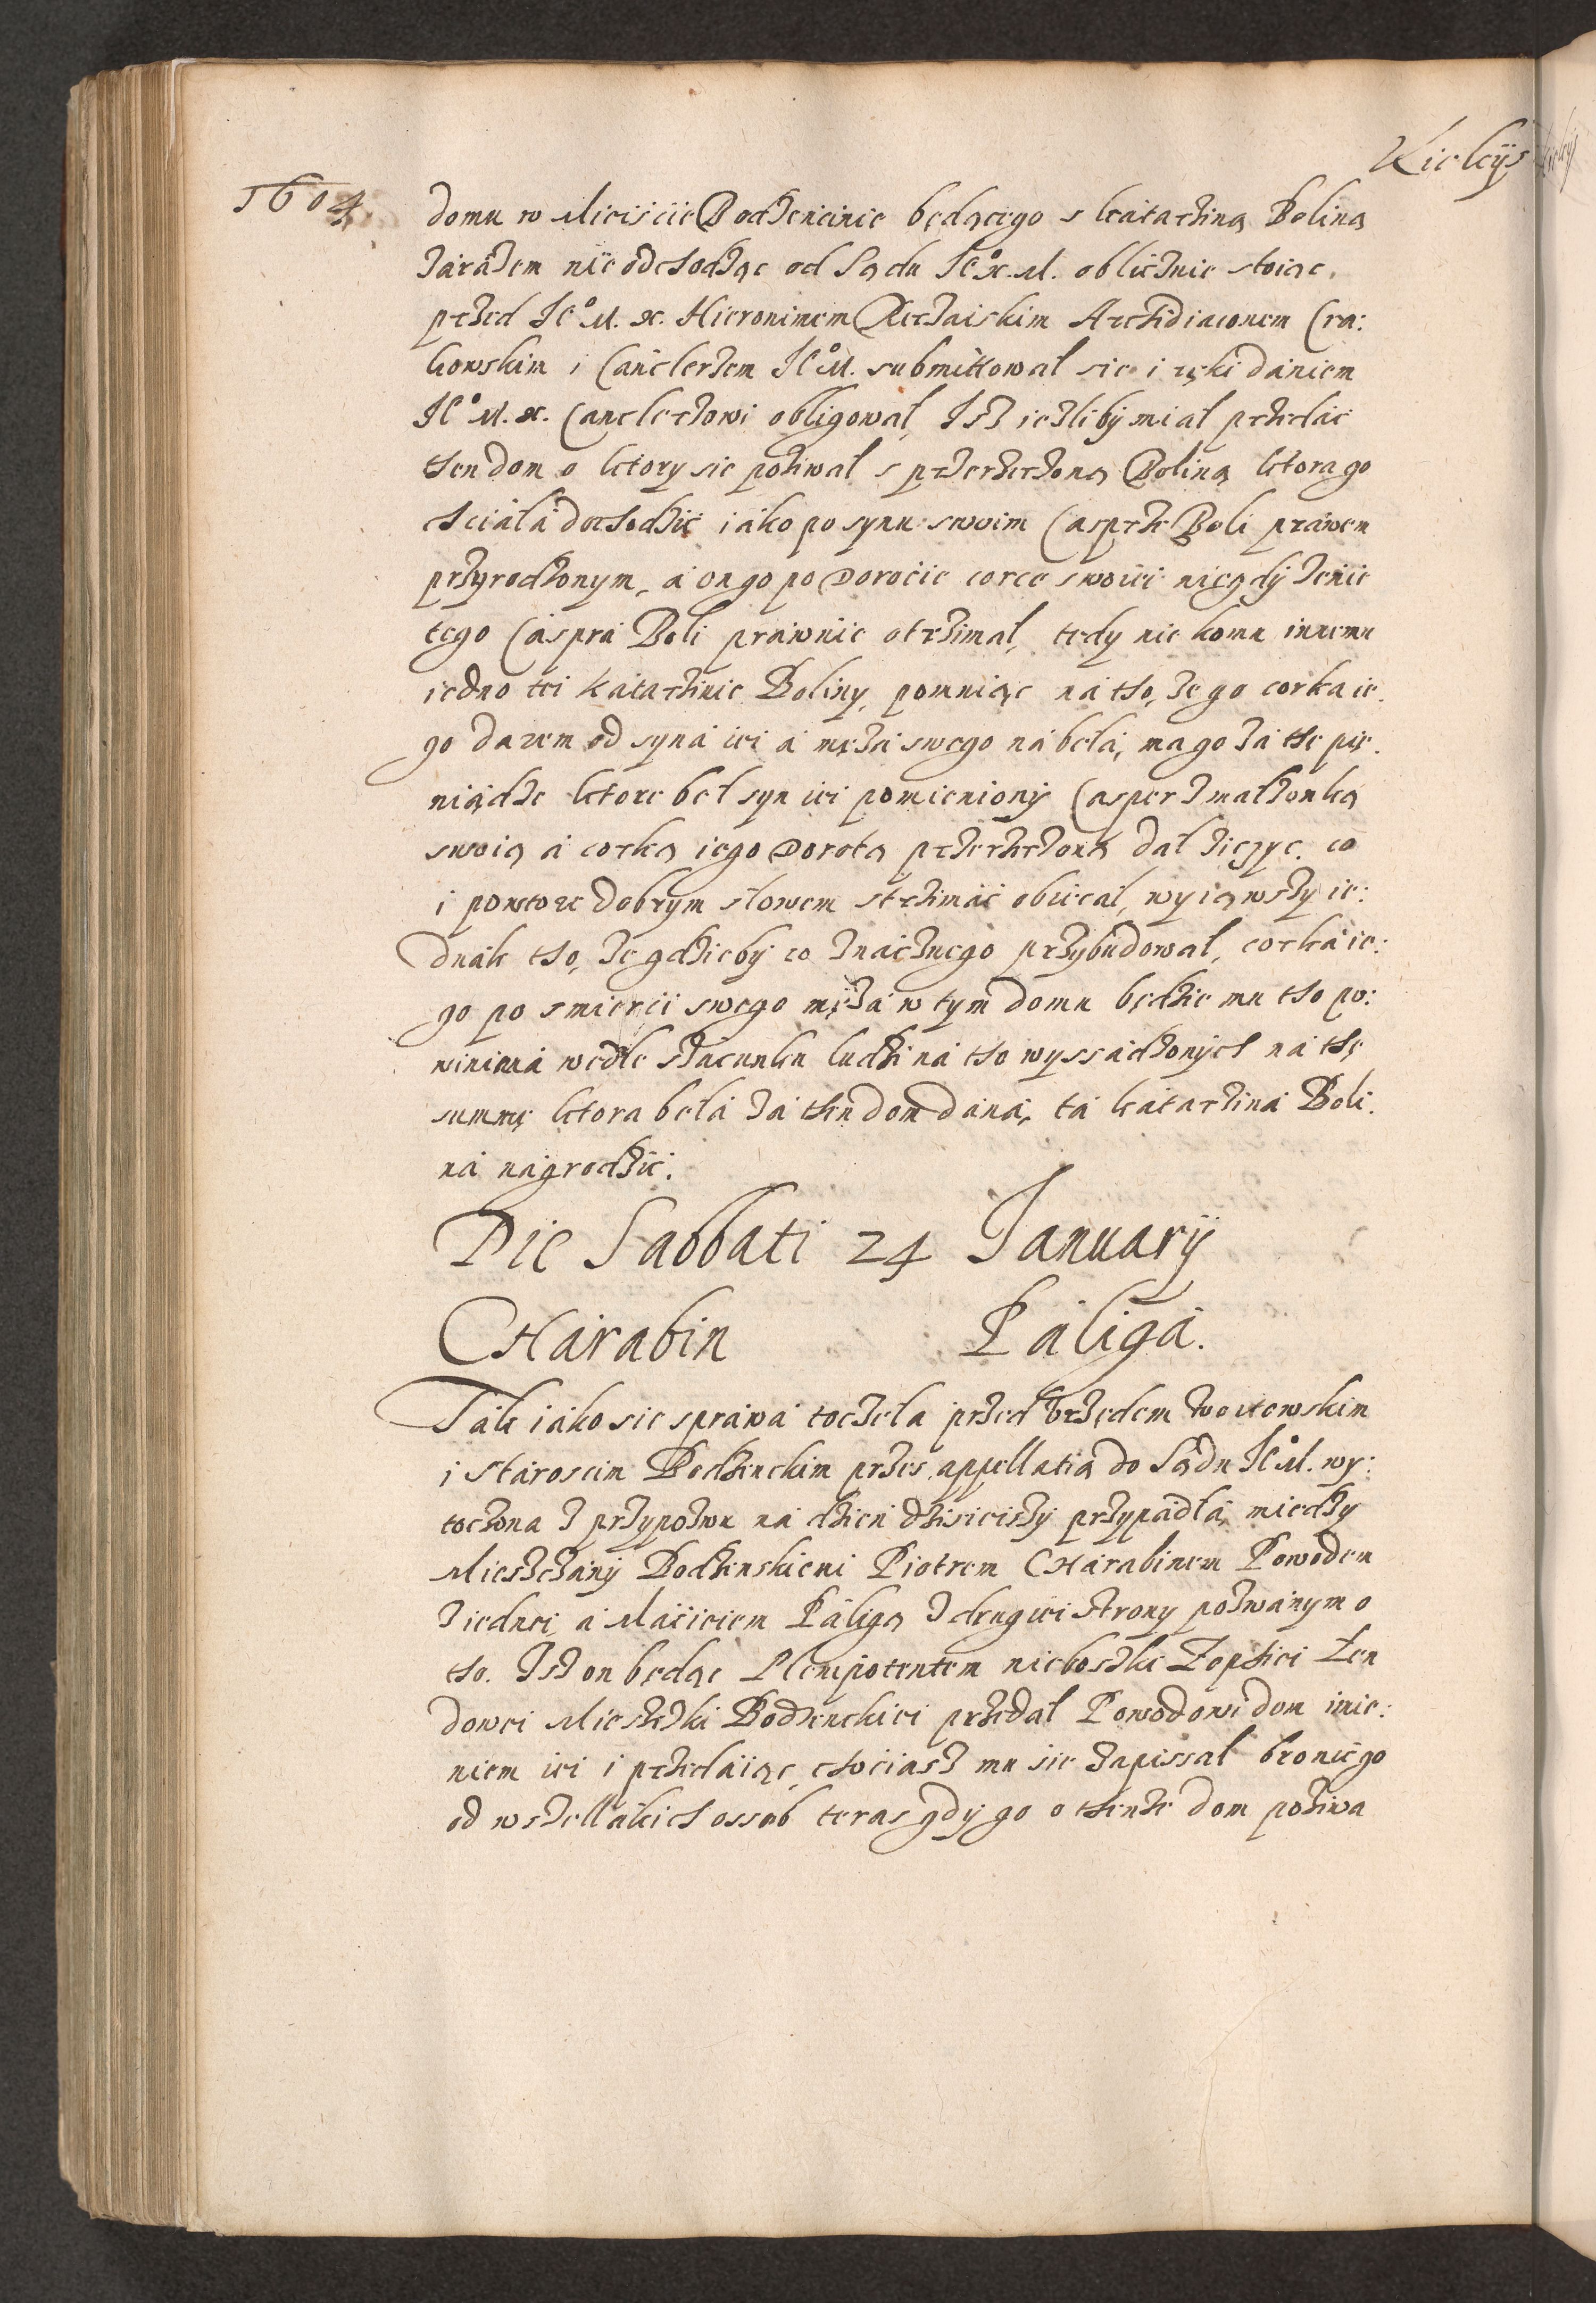 Kielcÿs
1604
domu w Mieiscie Bodzencinie będącego s Katarziną Boliną
zarazem nie odchodząc od Sądu JE° X. M. oblicznie stoiąc,
przed JE° M. X. Hieronimem Krzaiskim Archidiaconem Cra:
kowskim i Canclerzem JE° M. submittował sie i ręki daniem
JE° M. X. Canclerzowi obligował, Isz iezliby miał przedac
then dom o ktory sie pozwał s przerzeczoną Boliną ktora go
chciała dochodzić iako po synu swoim Casprze Boli prawem
przyrodzonym, a on go po Dorocie corce swoiei niegdy zenie
tego Caspra Boli prawnie otrzimał, tedy nie komu innemu
iedno tei Katarzinie Boliny, pomniąc na tho, ze go corka ie:
go darem od syna iei a męza swego nabeła, ma go za the pie:
niądze ktore beł syn iei pomieniony Casper z małzonką
swoią a corką iego Dorotą przerzeczoną dał ziczyc. co
i powtore dobrym słowem strzimać obiecał, wyiąwszy ie:
dnak tho, ze gdzieby co znacznego przybudował, corka ie:
go po smierci swego męza w tym domu będzie mu tho po:
winna wedle szacunku ludzi na tho wyssadzonych na thę
summę ktora beła za then dom dana, ta Katarzina Boli:
na nagrodzić.
Die Sabbati 24 Januarÿ
Charabin Paliga.
Tak iako sie sprawa toczeła przed Vrzędem Woitowskim
i Staroscim Bodzenckim przes appellatią do Sądu JE° M. wy:
toczona z przypozwu na dzien dzisieiszy przypadła, miedzy
Miesczany Bodzenskiemi Piotrem Charabinem Powodem
z iednei, a Macieiem Paligą z drugiei strony pozwanym o
tho. Isz on będąc Plenipotentem nieboszki Zophiei Zen
dowei Miesczki Bodzenckiei przedał Powodowi dom imie:
niem iei i przedaiąc, chociasz mu sie zapissał bronic go
od wszellakich ossob teras gdy go o thenze dom poziwa